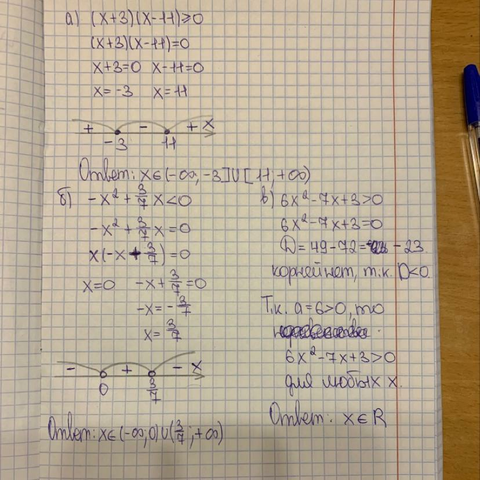 а) (x+3)(x-11)≥0
(x+3)(x-11)=0
x+3=0 x-11=0
x=-3 x=11
+ - + x
-3 11
Ответ: x∈(-∞,-3]∪[11,+∞)
б) -x²+3/7x<0
-x²+3/7x=0
x(-x+3/7)=0
x=0 -x+3/7=0
-x=-3/7
x=3/7
- + - x
0 3/7
Ответ: x∈(-∞,0)∪(3/7;+∞)
в) 6x²-7x+3>0
6x²-7x+3=0
D=49-72=-23
корней нет, т.к. D<0.
Т.к. a=6>0, то
6x²-7x+3>0
для любых x.
Ответ. x∈R